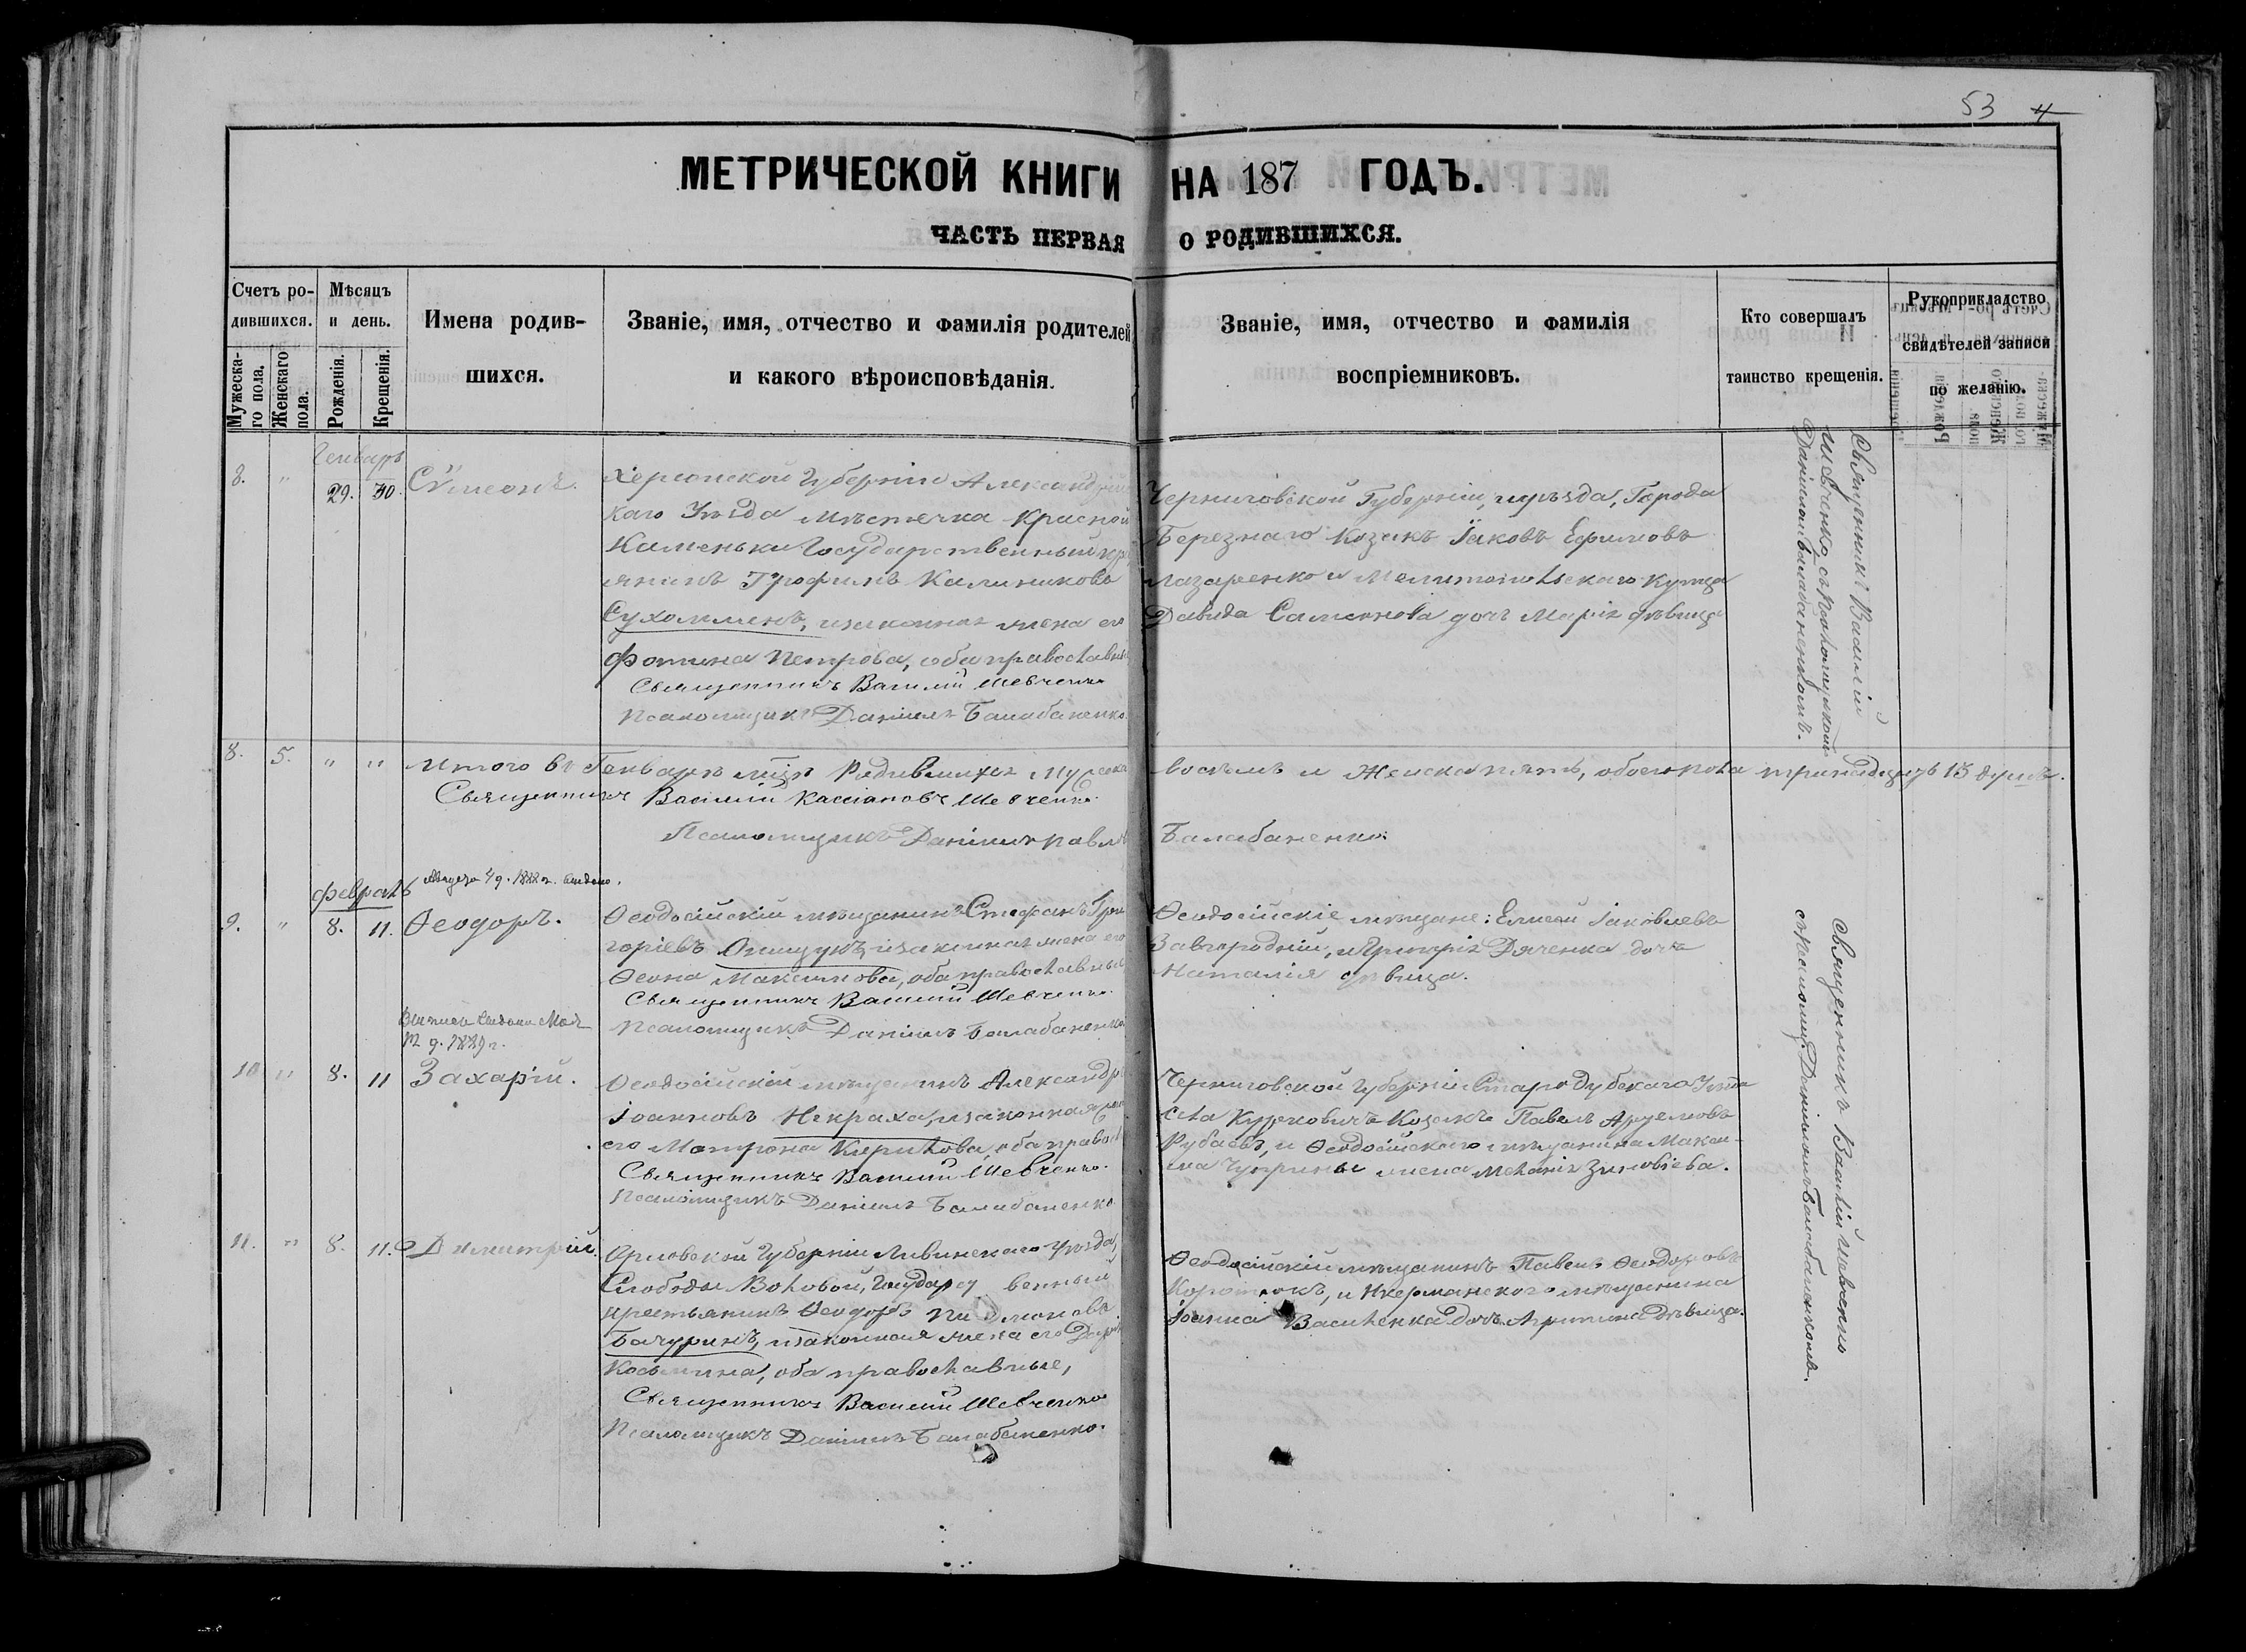 53 4
МЕТРИЧЕСКОЙ КНИГИ НА 187 ГОДЪ.
ЧАСТЬ ПЕРВАЯ О РОДИВШИХСЯ.
Счетъ ро-
дившихся.
Мужеска-
го пола.
Женскаго
пола.
Мѣсяцъ
и день.
Рожденія.
Крещенія.
Имена родив-
шихся.
Званіе, имя, отчество и фамилія родителей
и какого вѣроисповѣданія.
Званіе, имя, отчество и фамилія
воспріемниковъ.
Кто совершалъ
таинство крещенія.
Рукоприкладство
свидѣтелей записи
по желанію.
Генварь
8. " 29. 30. Сѵмеонъ.
Херсонской Губерніи Александрій
каго Уѣзда Мѣстечка Красной
Каменьки Государственный кре
янинъ Трофимъ Калиниковъ
Сухомлинъ, и законная жена его
Фотина Петрова, оба православн
Священникъ Василій Шевченко
Псаломщикъ Даніилъ Балабаненко.
Черниговской Губерніи, и уѣзда, Города
Березнаго Козакъ Іаковъ Ефимовъ
Лазаренко и Мелитопольскаго купца
Давида Саменнова дочь Марія дѣвица
Священникъ Василій
Шевченко, съ псаломщикомъ
Даніиломъ Балабаненкомъ.
8. 5. " " Итого въ Генварѣ мцѣ Родившихся Мужеска
восемь и Женска пять, обоего пола тринадцать 13 душъ.
Священникъ Василій Кассіановъ Шевченко.
Псаломщикъ Даніилъ Павл
Балабаненко.
Февраль
9. " 8. 11. Ѳеодоръ.
Ѳеодосійскій мѣщанинъ Стефанъ Гри
горіевъ Онищукъ, и законная жена его
Ѳеона Максимова, оба православные
Священникъ Василій Шевченко.
Псаломщикъ Даніилъ Балабаненко
Ѳеодосійскіе мѣщане: Елисей Іаковлевъ
Завгородній, и Григорія Дяченка дочь
Наталія дѣвица.
10 " 8. 11 Захарій.
Ѳеодосійскій мѣщанинъ Александръ
Іоанновъ Некраха, и законная жена
его Матрона Кирилова, оба правосл
Священникъ Василій Шевченко.
Псаломщикъ Даніилъ Балабаненко
Черниговской Губерніи Стародубскаго Уѣзда
села Курковичъ Козакъ Павелъ
Рубаевъ, и Ѳеодосійскаго мѣщанина Макси-
ма Чуприны жена Меланія Зиновіева.
11. " 8. 11. Димитрій.
Орловской Губерніи Ливинскаго уѣзда,
Слободы Воловой, Государст венный
крестьянинъ Ѳеодоръ
Бачуринъ, и законная жена его Дарія
Косьмина, оба православные,
Священникъ Василій Шевченко
Псаломщикъ Даніилъ Балабаненко.
Ѳеодосійскій мѣщанинъ Павелъ Ѳеодоровъ
и мѣщанина
Іоанна Василенка дочь дѣвица.
Священникъ Василій Шевченко
съ псаломщ. Даніиломъ Балабаненкомъ.